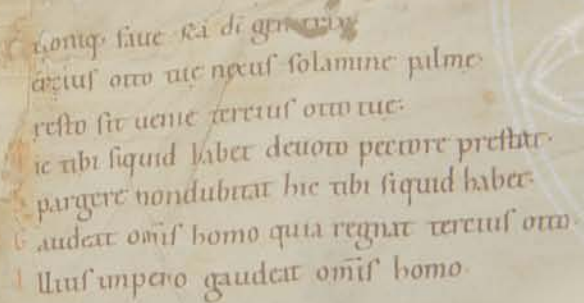 oniq. faue sc̄a dī genetrix
erciuſ otto tue nexuſ ſolamine palme.
reſto ſit uenie terciuſ otto tue:
ic tibi ſiquid habet deuoto pectore preſtat.
pargere nondubitat hic tibi ſiquid habet.
audeat om̄iſ homo quia regnat terciuſ otto.
lliuſ impero gaudeat om̄iſ homo.